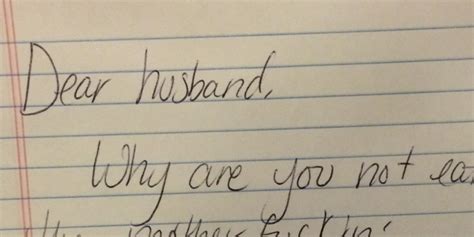 Dear husband,
Why are you not ea